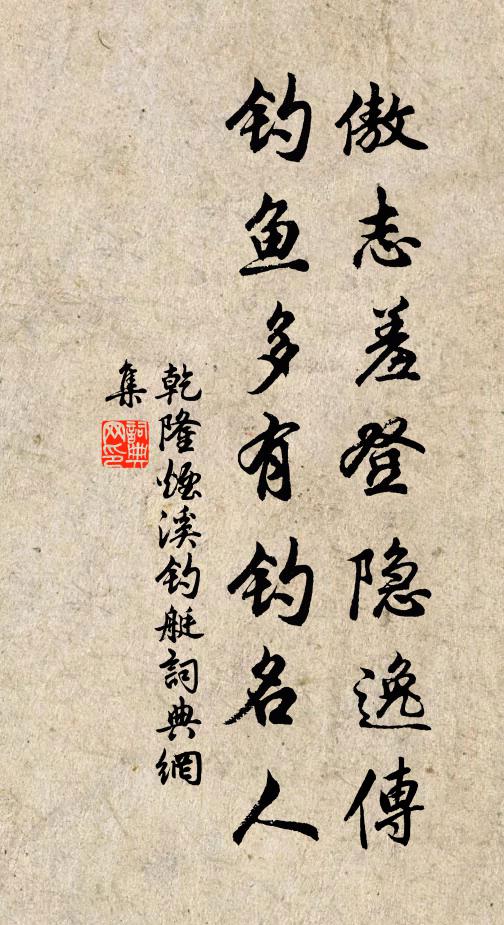 傲志羞登隐逸傳
钓鱼多有钓名人
乾隆煙溪钓艇詞典網
集
詞典
网印